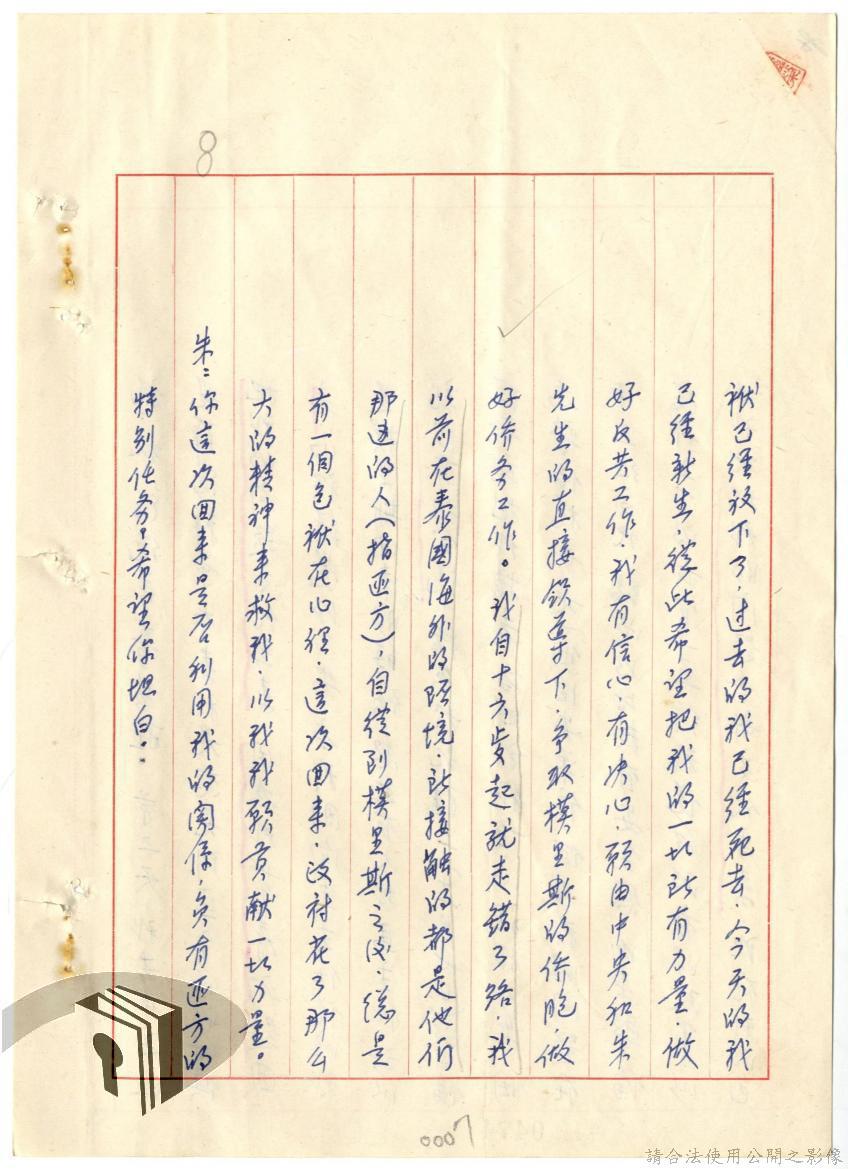 8
袱已经放下了，过去的我已经死去，今天的我
已经新生，從此希望把我的一切所有力量，做
好反共工作，我有信心，有决心，願由中央和朱
先生的直接領導下，争取模里斯的侨胞，做
好侨务工作。我自十六岁起就走錯了路，我
以前在泰國海外的环境，所接触的都是他们
那边的人（指匪方），自從到模里斯之後，總是
有一個包袱在心裡，這次回来，政府花了那么
大的精神来救我，所以我願貢献一切力量。
朱：你這次回来是否利用我的関係，负有匪方的
特别任务，希望你坦白。
0007
請合法使用公開之影像